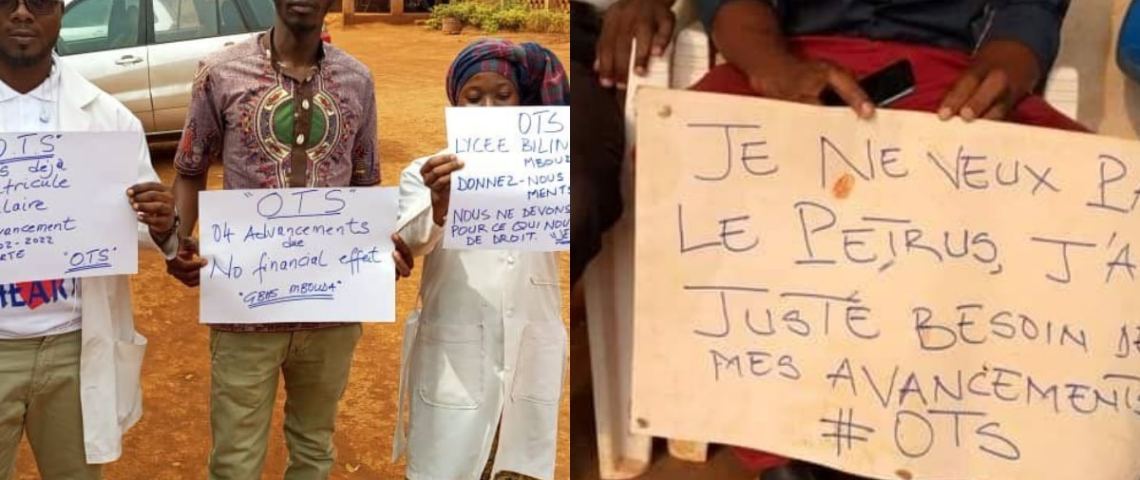 "O.T.S"
déjà
laire
02-2022
"OTS"
HEAR
"OTS"
04 Advancements
due
No financial effet
"GBHS MBOUDA"
OTS
LYCEE BILIN
MBOU
DONNEZ-NOUS
MENTS
NOUS NE DEVONS
POUR CE QUI NOU
DE DROIT.
JE NE VEUX PA
LE PETRUS, J'A
JUSTE BESOIN DE
MES AVANCEMENTS
# OTS